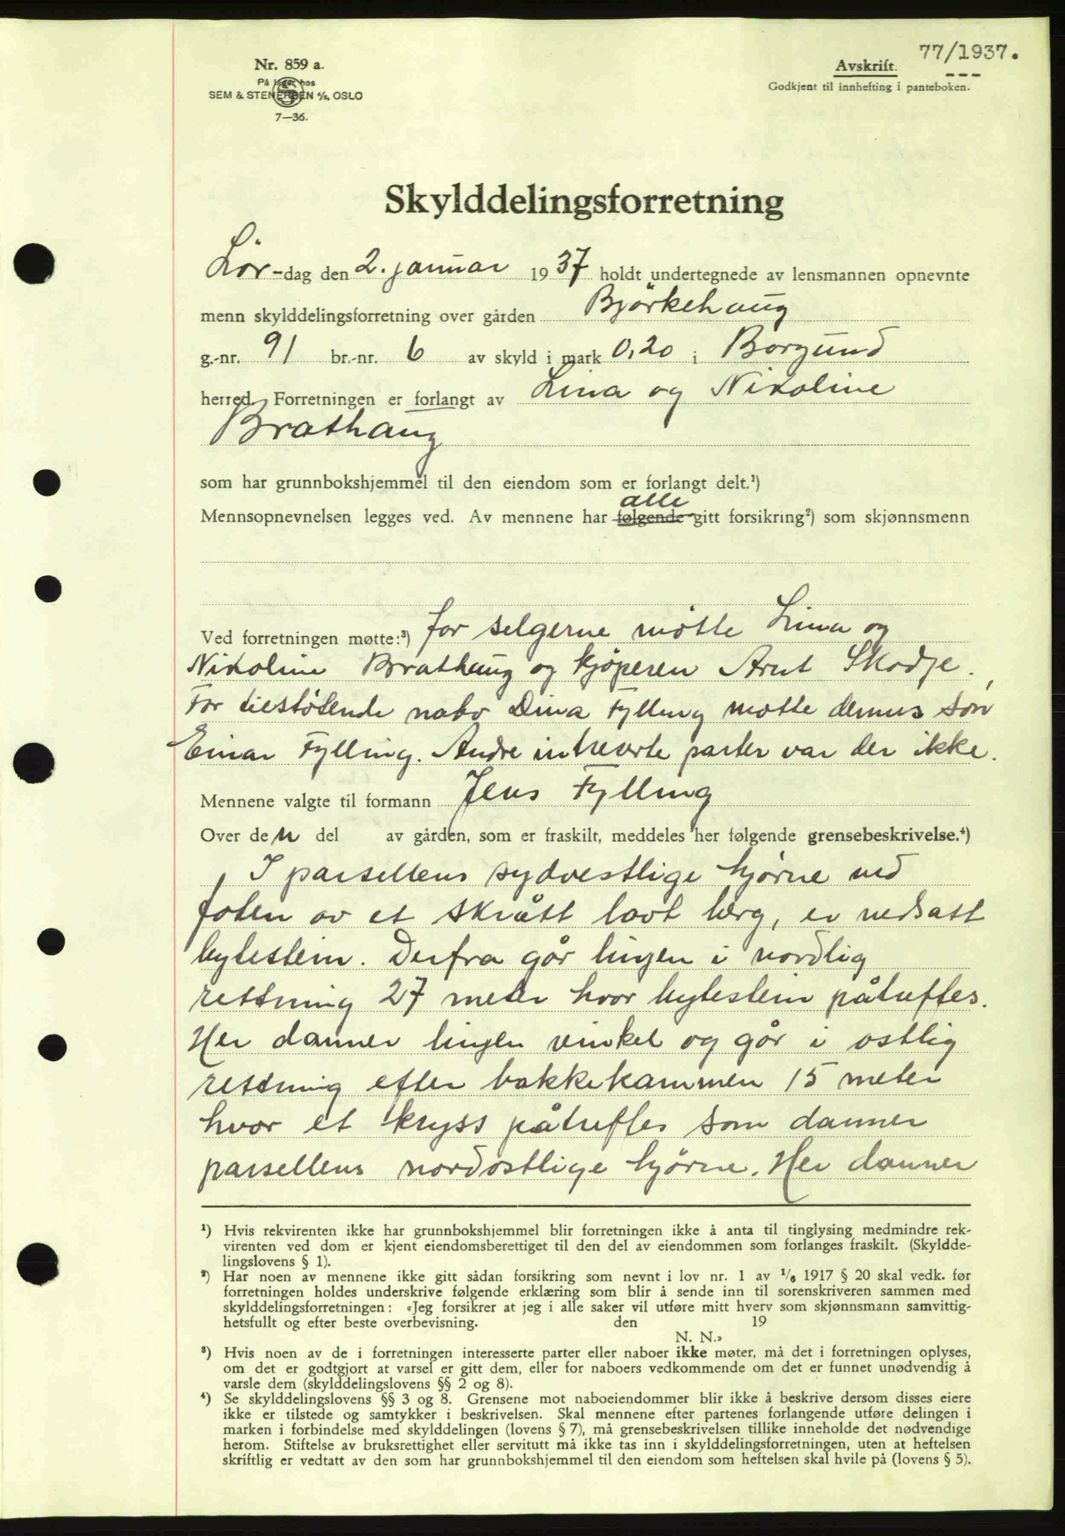 77/1937.
Nr. 859 a.
På lager hos
SEM & STENERSEN A/S, OSLO
7—36.
Avskrift.
Godkjent til innhefting i panteboken.
Skylddelingsforretning
Lör-dag den 2. januar 1937 holdt undertegnede av lensmannen opnevnte
menn skylddelingsforretning over gården Björkehaug
g.-nr. 91 br.-nr. 6 av skyld i mark 0,20 i Borgund
herred. Forretningen er forlangt av Lina og Nikoline
Brathaug
som har grunnbokshjemmel til den eiendom som er forlangt delt.¹)
alle
Mennsopnevnelsen legges ved. Av mennene har følgende gitt forsikring²) som skjønnsmenn
Ved forretningen møtte:³) for selgerne møtte Lina og
Nikoline Brathaug og kjøperen Arnt Skodje.
For tilstøtende nabo Dina Fylling møtte dennes søn
Einar Fylling. Andre intreserte parter var der ikke.
Mennene valgte til formann Jens Fylling
Over den del av gården, som er fraskilt, meddeles her følgende grensebeskrivelse.⁴)
I parsellens sydvestlige hjørne ved
foten av et skrått lavt berg, er nedsatt
bytestein. Derfra går linjen i nordlig
rettning 27 meter hvor bytestein påtreffes.
Her danner linjen vinkel og går i østlig
rettning efter bakkekammen 15 meter
hvor et kryss påtreffes som danner
parsellens nordøstlige hjørne. Her danner
¹) Hvis rekvirenten ikke har grunnbokshjemmel blir forretningen ikke å anta til tinglysing medmindre rek-
virenten ved dom er kjent eiendomsberettiget til den del av eiendommen som forlanges fraskilt. (Skyldde-
lingslovens § 1).
²) Har noen av mennene ikke gitt sådan forsikring som nevnt i lov nr. 1 av ¹/₆ 1917 § 20 skal vedk. før
forretningen holdes underskrive følgende erklæring som blir å sende inn til sorenskriveren sammen med
skylddelingsforretningen: «Jeg forsikrer at jeg i alle saker vil utføre mitt hverv som skjønnsmann samvittig-
hetsfullt og efter beste overbevisning. den 19
N. N.»
³) Hvis noen av de i forretningen interesserte parter eller naboer ikke møter, må det i forretningen oplyses,
om det er godtgjort at varsel er gitt dem, eller for naboers vedkommende om det er funnet unødvendig å
varsle dem (skylddelingslovens §§ 2 og 8).
⁴) Se skylddelingslovens §§ 3 og 8. Grensene mot naboeiendommer blir ikke å beskrive dersom disses eiere
ikke er tilstede og samtykker i beskrivelsen. Skal mennene efter partenes forlangende utføre delingen i
marken i forbindelse med skylddelingen (lovens § 7), må grensebeskrivelsen tillike inneholde det nødvendige
herom. Stiftelse av bruksrettighet eller servitutt må ikke tas inn i skylddelingsforretningen, uten at heftelsen
skriftlig er vedtatt av den som har grunnbokshjemmel til den eiendom som heftelsen skal hvile på (lovens § 5).